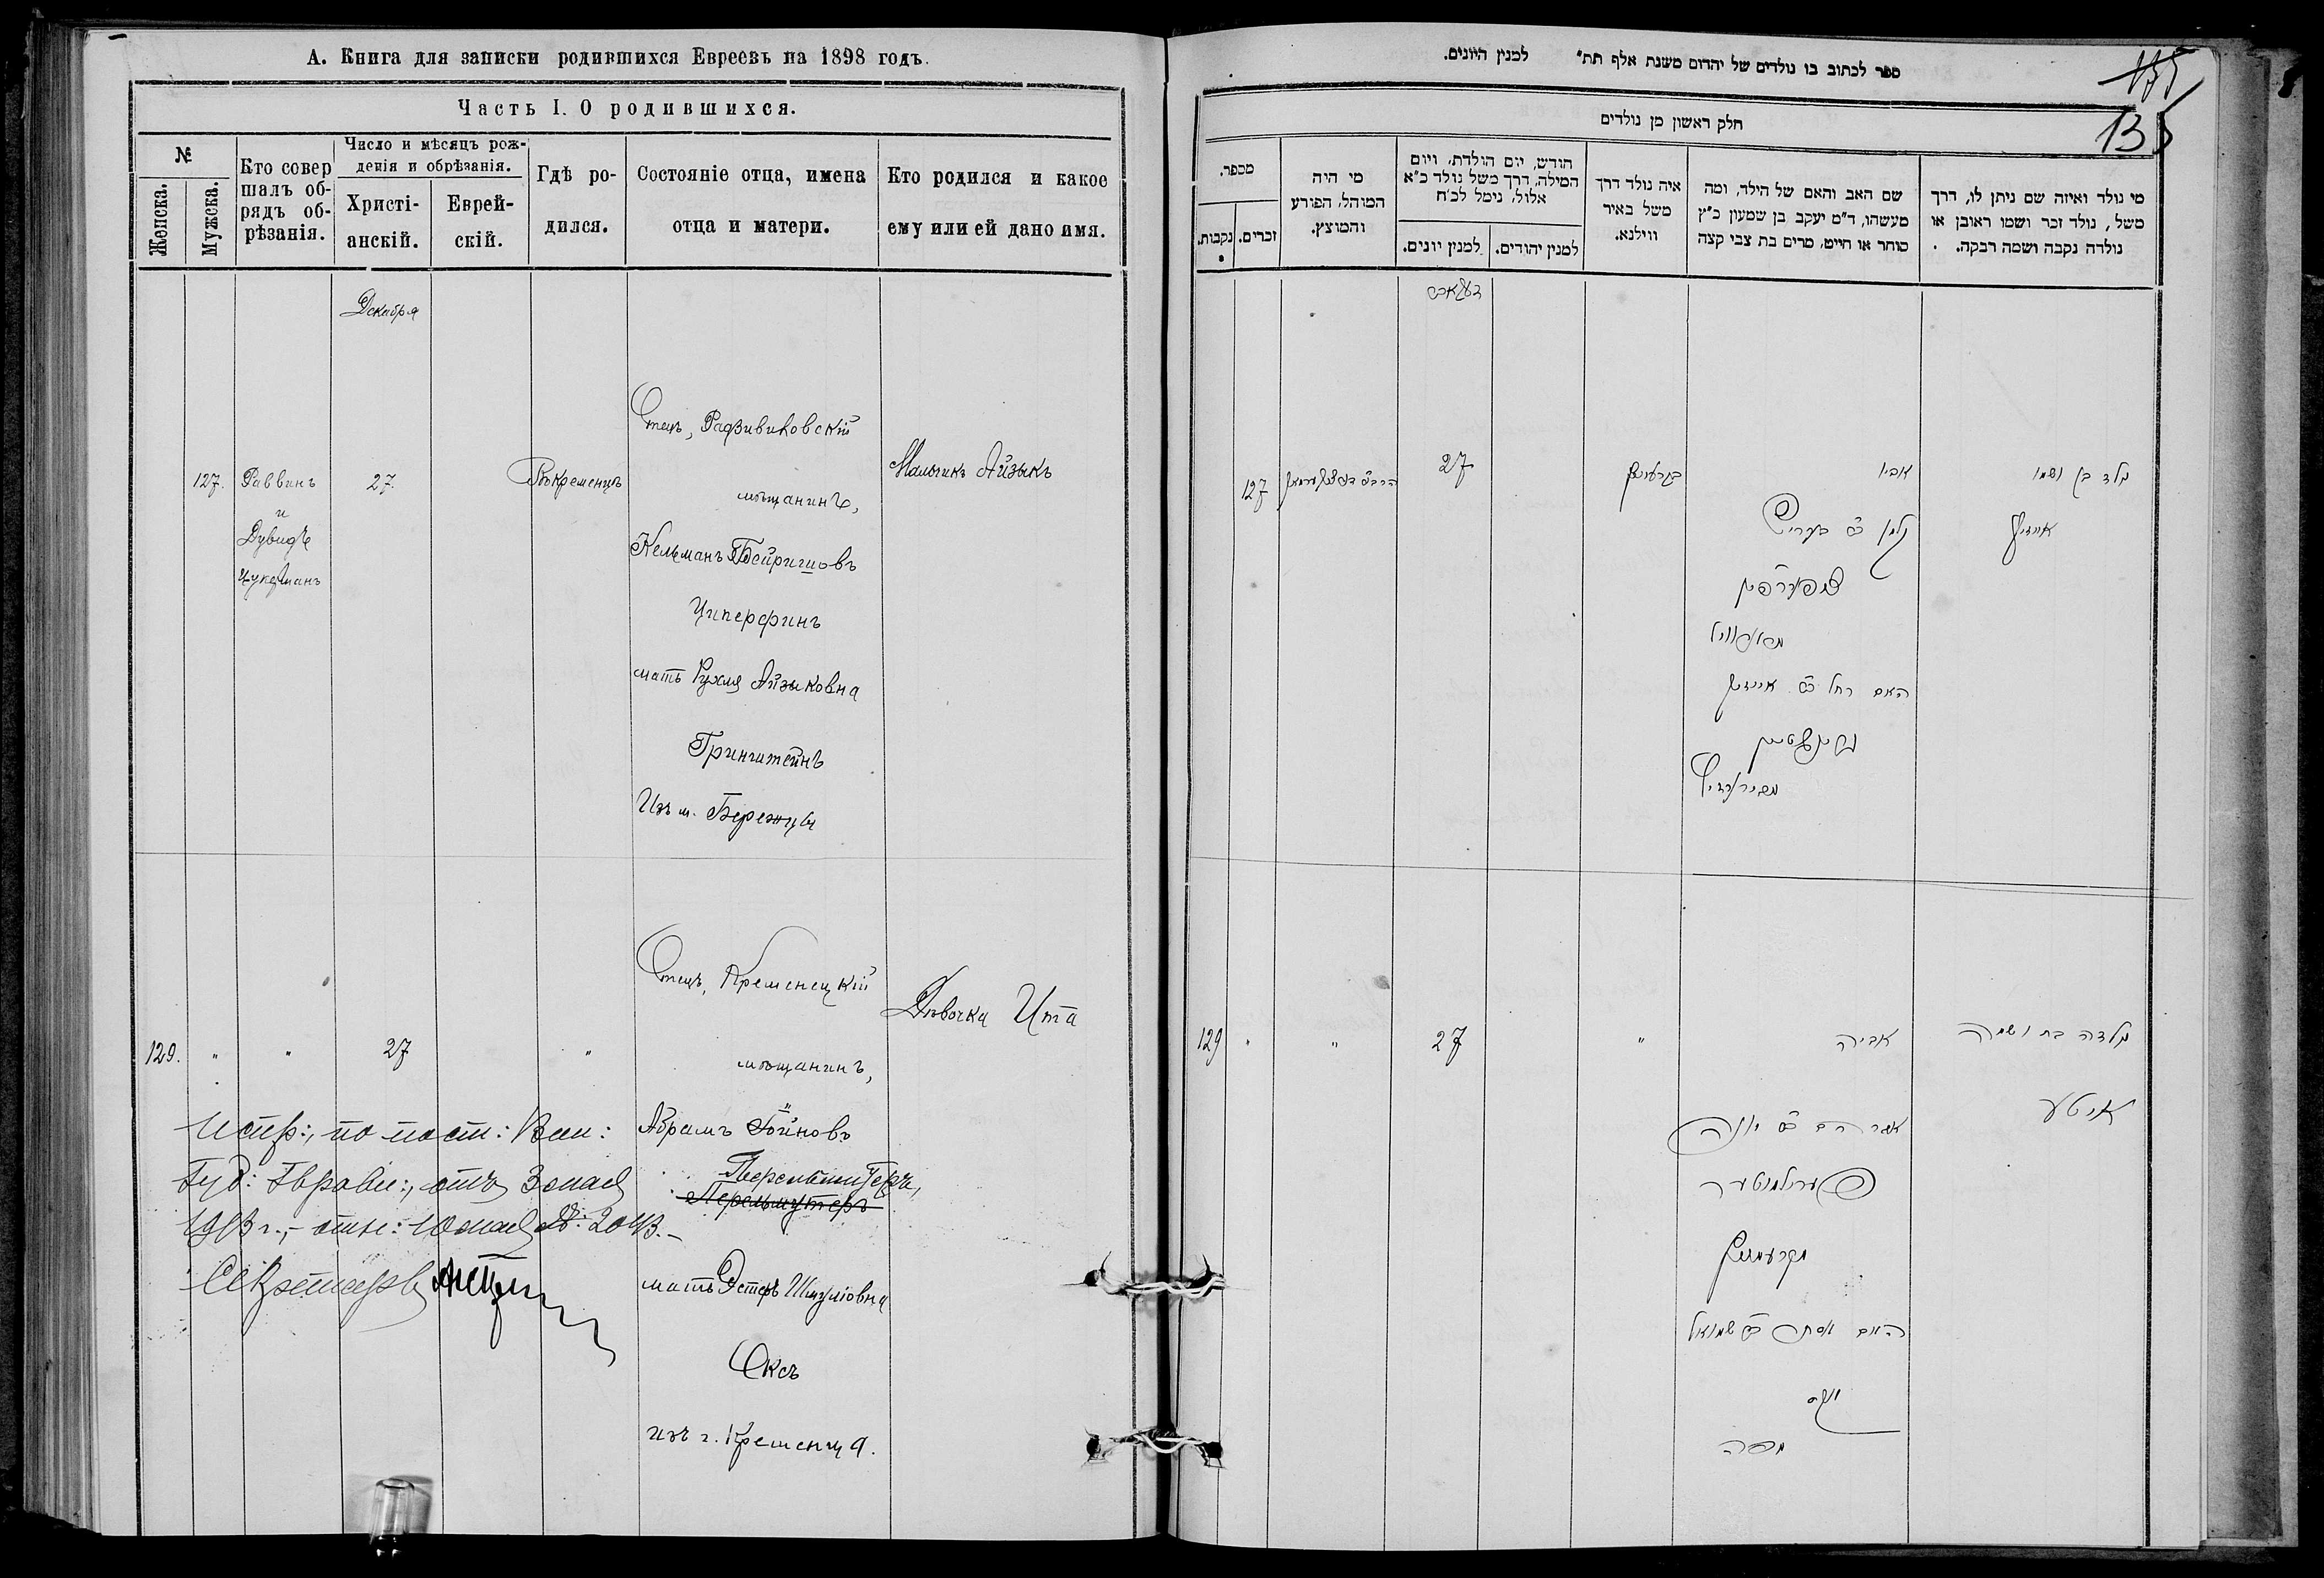 А. Книга для записки родившихся Евреевъ на 1898 годъ.
Часть I. О родившихся.
№
Женска.
Мужска.
Кто совер
шалъ об-
рядъ об-
рѣзанія.
Число и мѣсяцъ рож-
денія и обрѣзанія.
Христі-
анскій.
Еврей-
скій.
Гдѣ ро-
дился.
Состояніе отца, имена
отца и матери.
Кто родился и какое
ему или ей дано имя.
Декабря
127.
Раввинъ
и
Дувидъ
Цукерманъ
27.
Въ Кременцѣ
Отецъ, Радзивиловскій
мѣщанинъ,
Кельманъ Бейришовъ
Циперфинъ
мать Рухля Айзыковна
Гринштейнъ
Изъ м. Бережцы
Мальчикъ Айзыкъ
129.
"
"
27
"
Отецъ, Кременецкій
мѣщанинъ,
Абрамъ
Перельмутеръ
мать Эстеръ Шмулювна
Оксъ
изъ г. Кременца.
Дѣвочка Ита
Испр:, по пост: Вол:
Губ: Правл:, отъ 3 мая
1913 г.,- отн: 10 мая №: 2043.-
Секретарь
ספר לכתוב בו נולדים של יהדום משנת אלף תת" למנין היונים.
135
חלק ראשון מן נולדים
מספר.
נקבות.
זכרים.
מי היה
המוהל, הפורע
והמוצץ.
חודש, יום הולדת, ויום
המילה, דרך משל נולד כ"א
אלול, נימל לכ"ח
למנין יונים.
למנין יהודים.
איה נולד דרך
משל באיר
ווילנא.
שם האב והאם של הילד, ומה
מעשהו, ד"מ יעקב בן שמעון כ"ץ
סוחר או חייט, מרים בת צבי קצה
מי נולד ואיזה שם ניתן לו, דרך
משל, נולד זכר ושמו ראובן או
נולדה נקבה ושמה רבקה.
127
27
אביו
נולד בן ושמו
אייזיק
האם רחל אייזיק
129
"
"
27
"
אביה
נולדה בת ושמה
איטע
אברהם יונה
פערילמוטער
מקרעמניץ
האם אסתר שמואל